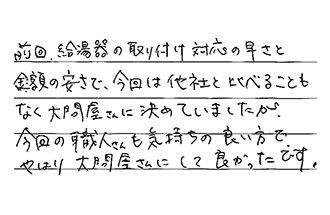 前回、給湯器の取り付け対応の早さと
金額の安さで、今回は他社と比べることも
なく大問屋さんに決めていましたが、
今回の職人さんも気持ちの良い方で、
やはり大問屋さんにして良かったです。